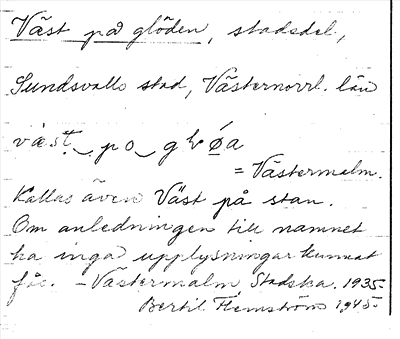 Väst på glöden, stadsdel,
Sundsvalls stad, Västernorrl. län
väst po
= Västermalm.
Kallas även Väst på stan.
Om anledningen till namnet
ha inga upplysningar kunnat
fås. – Västermalm, Stadska. 1935.
Bertil Flemström 1945.